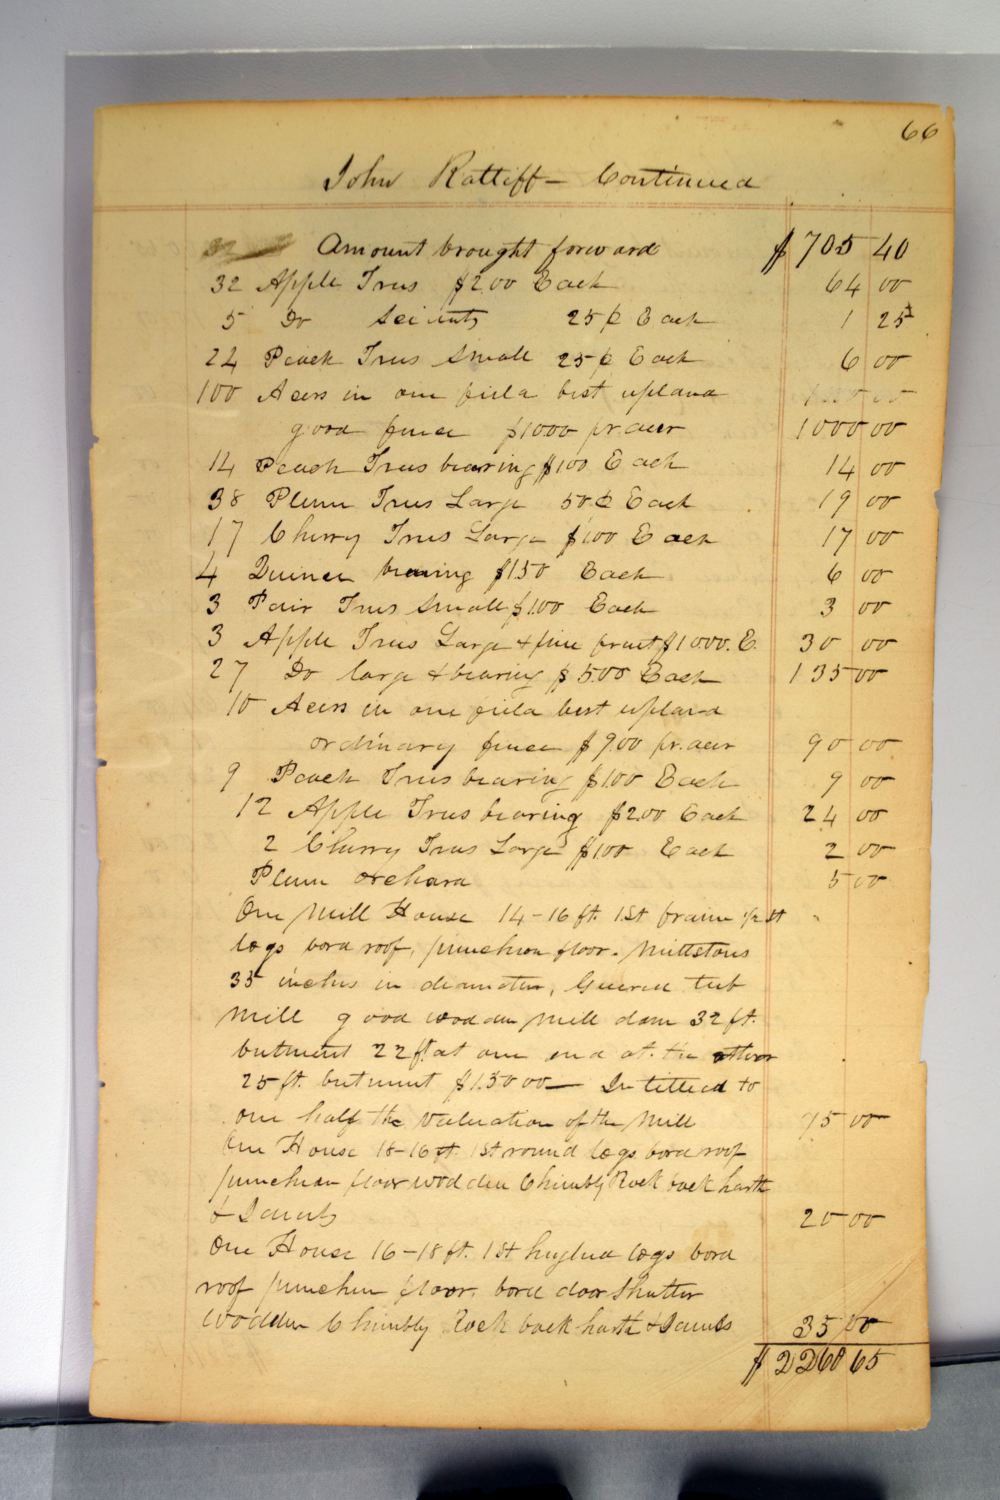 66
John Ratliff – Continued
Amount brought forward $ 705 40
32 Apple Trees $2.00 Each 64 00
5 Do Scients 25¢ Each 1 25
24 Peach Trees Small 25¢ Each 6 00
100 Acers in one field best upland
good fence $10.00 pr. acer 1000 00
14 Peach Trees bearing $1.00 Each 14 00
38 Plum Trees Large 50¢ Each 19 00
17 Cherry Trees Large $1.00 Each 17 00
4 Quince bearing $1.50 Each 6 00
3 Pair Trees Small $1.00 Each 3 00
3 Apple Trees Large & fine fruit $10.00. E. 30 00
27 Do large & bearing $5.00 Each 135 00
10 Acers in one field best upland
ordinary fence $9.00 pr. acer 90 00
9 Peach Trees bearing $1.00 Each 9 00
12 Apple Trees bearing $2.00 Each 24 00
2 Cherry Trees Large $1.00 Each 2 00
Plum orchard 5 00
One Mill House 14–16 ft. 1 St frame
logs bord roof, puncheon floor. Millstones
35 inches in diameter, Geered tub
Mill good wooden Mill dam 32 ft.
butment 22 ft. at one end at the other
25 ft. butment $150 00 – In titled to
one half the valuation of the Mill 75 00
One House 18–16 ft. 1 St round logs bord roof
puncheon floor wodden Chimbly Rock back harth
& Jaumbs 20 00
One House 16–18 ft. 1 St hughed logs bord
roof puncheon floor, bord door Shutter
Wodden Chimbly Rock back harth & Jaumbs 35 00
$ 2260 65